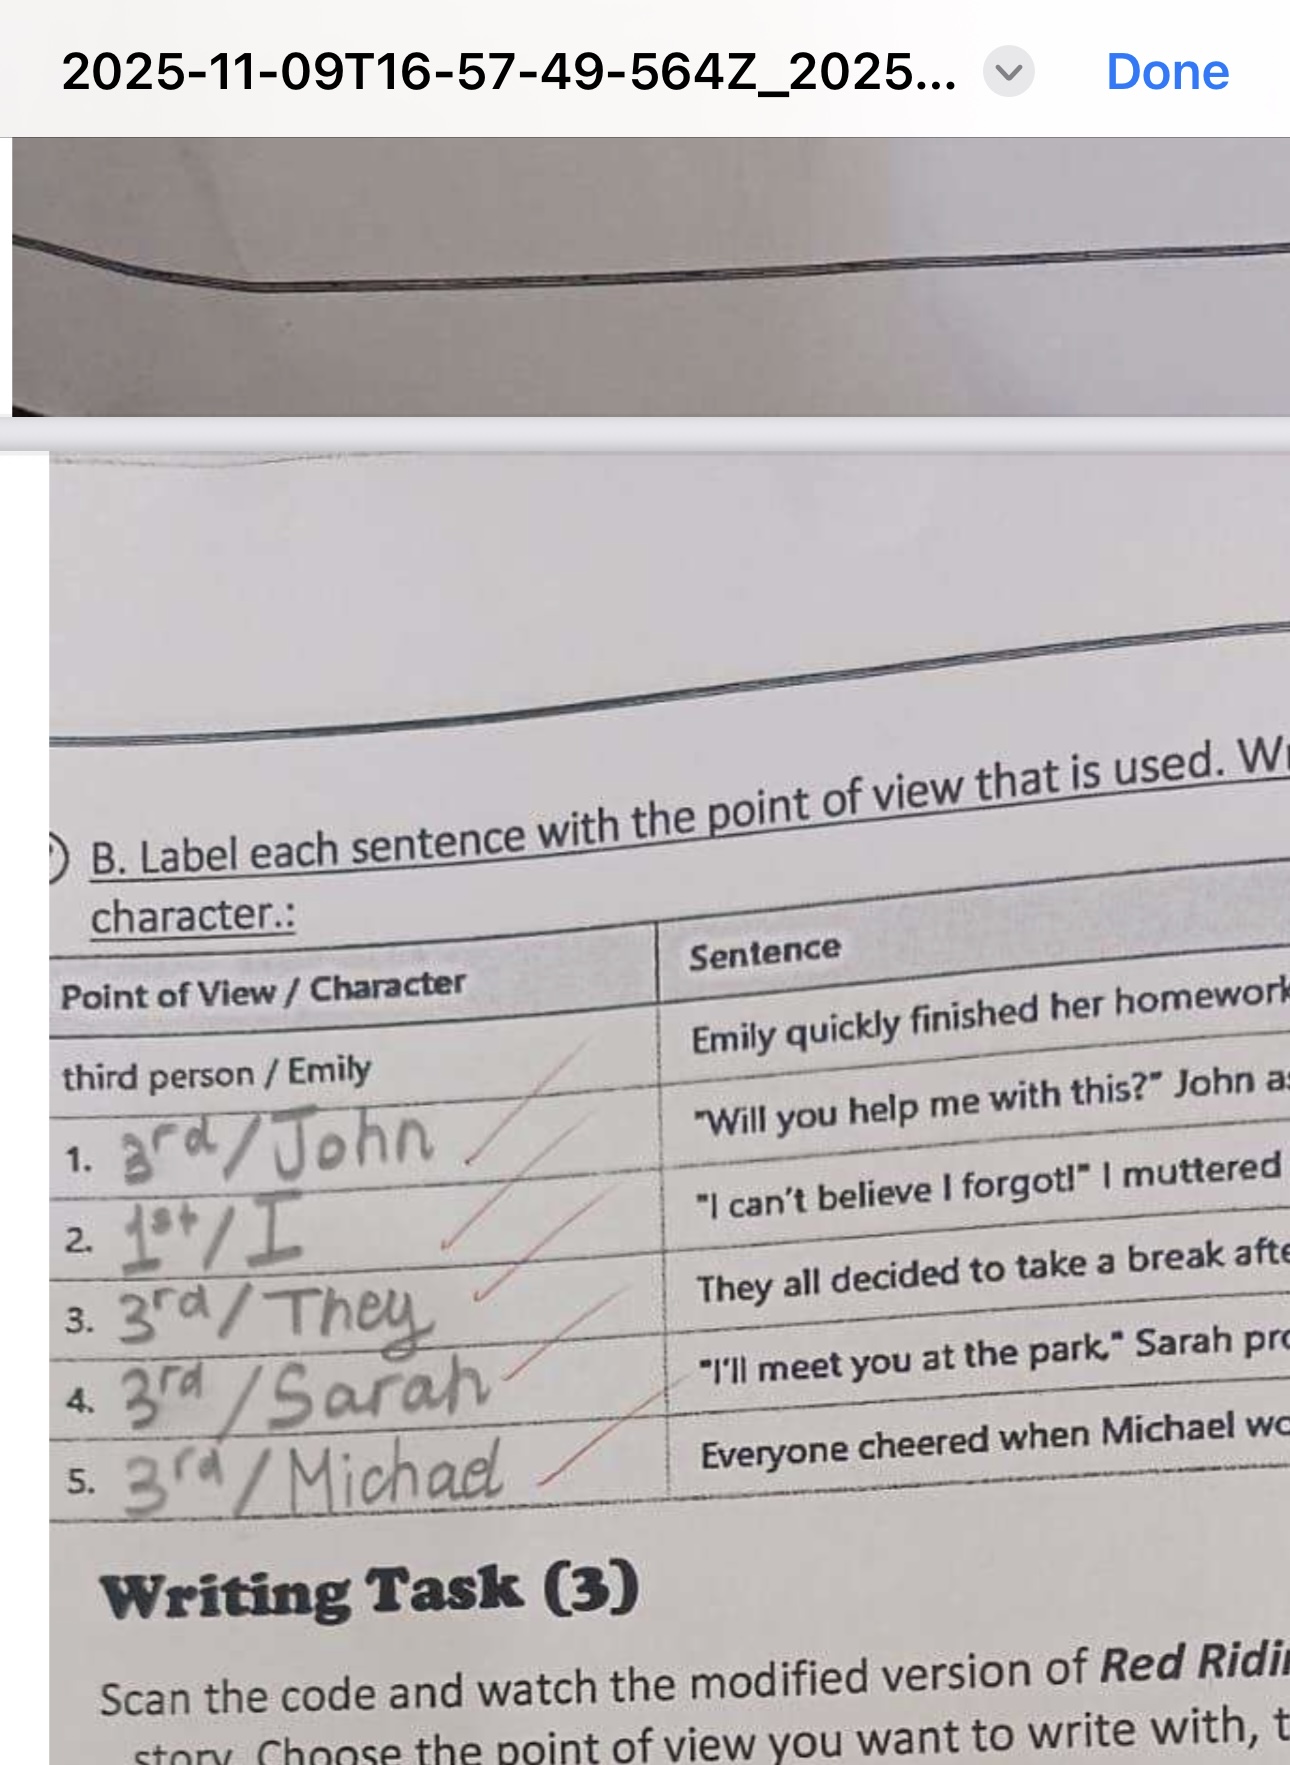 2025-11-09T16-57-49-564Z_2025... Done
B. Label each sentence with the point of view that is used.
character.:
Point of View / Character Sentence
third person / Emily Emily quickly finished her homework
1. 3rd/John "Will you help me with this?" John
2. 1st/I "I can't believe I forgot!" I muttered
3. 3rd/They They all decided to take a break
4. 3rd/Sarah "I'll meet you at the park," Sarah
5. 3rd/Michael Everyone cheered when Michael
Writing Task (3)
Scan the code and watch the modified version of Red
story. Choose the point of view you want to write with,